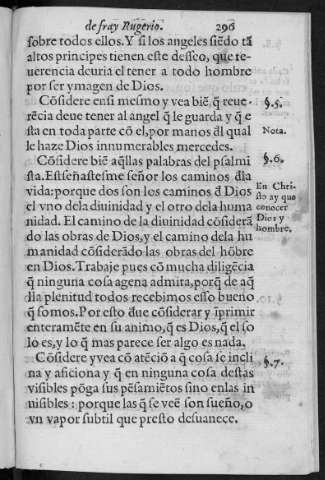 de fray Rugerio. 296
sobre todos ellos. Y si los angeles siẽdo tã
altos principes tienen este desseo, que re-
uerencia deuria el tener a todo hombre
por ser ymagen de Dios.
Cõsidere ensi mesmo y vea biẽ q̃ reue-
rẽcia deue tener al angel q̃ le guarda y q̃ e
sta en toda parte cõ el, por manos d̃l qual
le haze Dios innumerables mercedes.
Cõsidere biẽ aq̃llas palabras del psalmi
sta. Estseñastesme señor los caminos d̃la
vida: porque dos son los caminos d̃ Dios
el vno dela diuinidad y el otro dela huma
nidad. El camino de la diuinidad cõsiderã
do las obras de Dios, y el camino dela hu
manidad cõsiderãdo las obras del hõbre
en Dios. Trabaje pues cõ mucha diligẽcia
q̃ ninguna cosa agena admita, porq̃ de aq̃
lla plenitud todos recebimos esso bueno
q̃ somos. Por esto d̃ue cõsiderar y ĩprimir
enteramẽte en su animo, q̃ es Dios, q̃ el so
lo es, y lo q̃ mas parece ser algo es nada.
Cõsidere y vea cõ atẽciõ a q̃ cosa se incli
na y aficiona y q̃ en ninguna cosa destas
visibles põga sus pẽsamiẽtos sino enlas in
uisibles: porque las q̃ se veẽ son sueño, o
vn vapor subtil que presto desuanece.
§.5.
Nota.
§.6.
En Chri-
sto ay que
conocer
Dios y
hombre.
§.7.